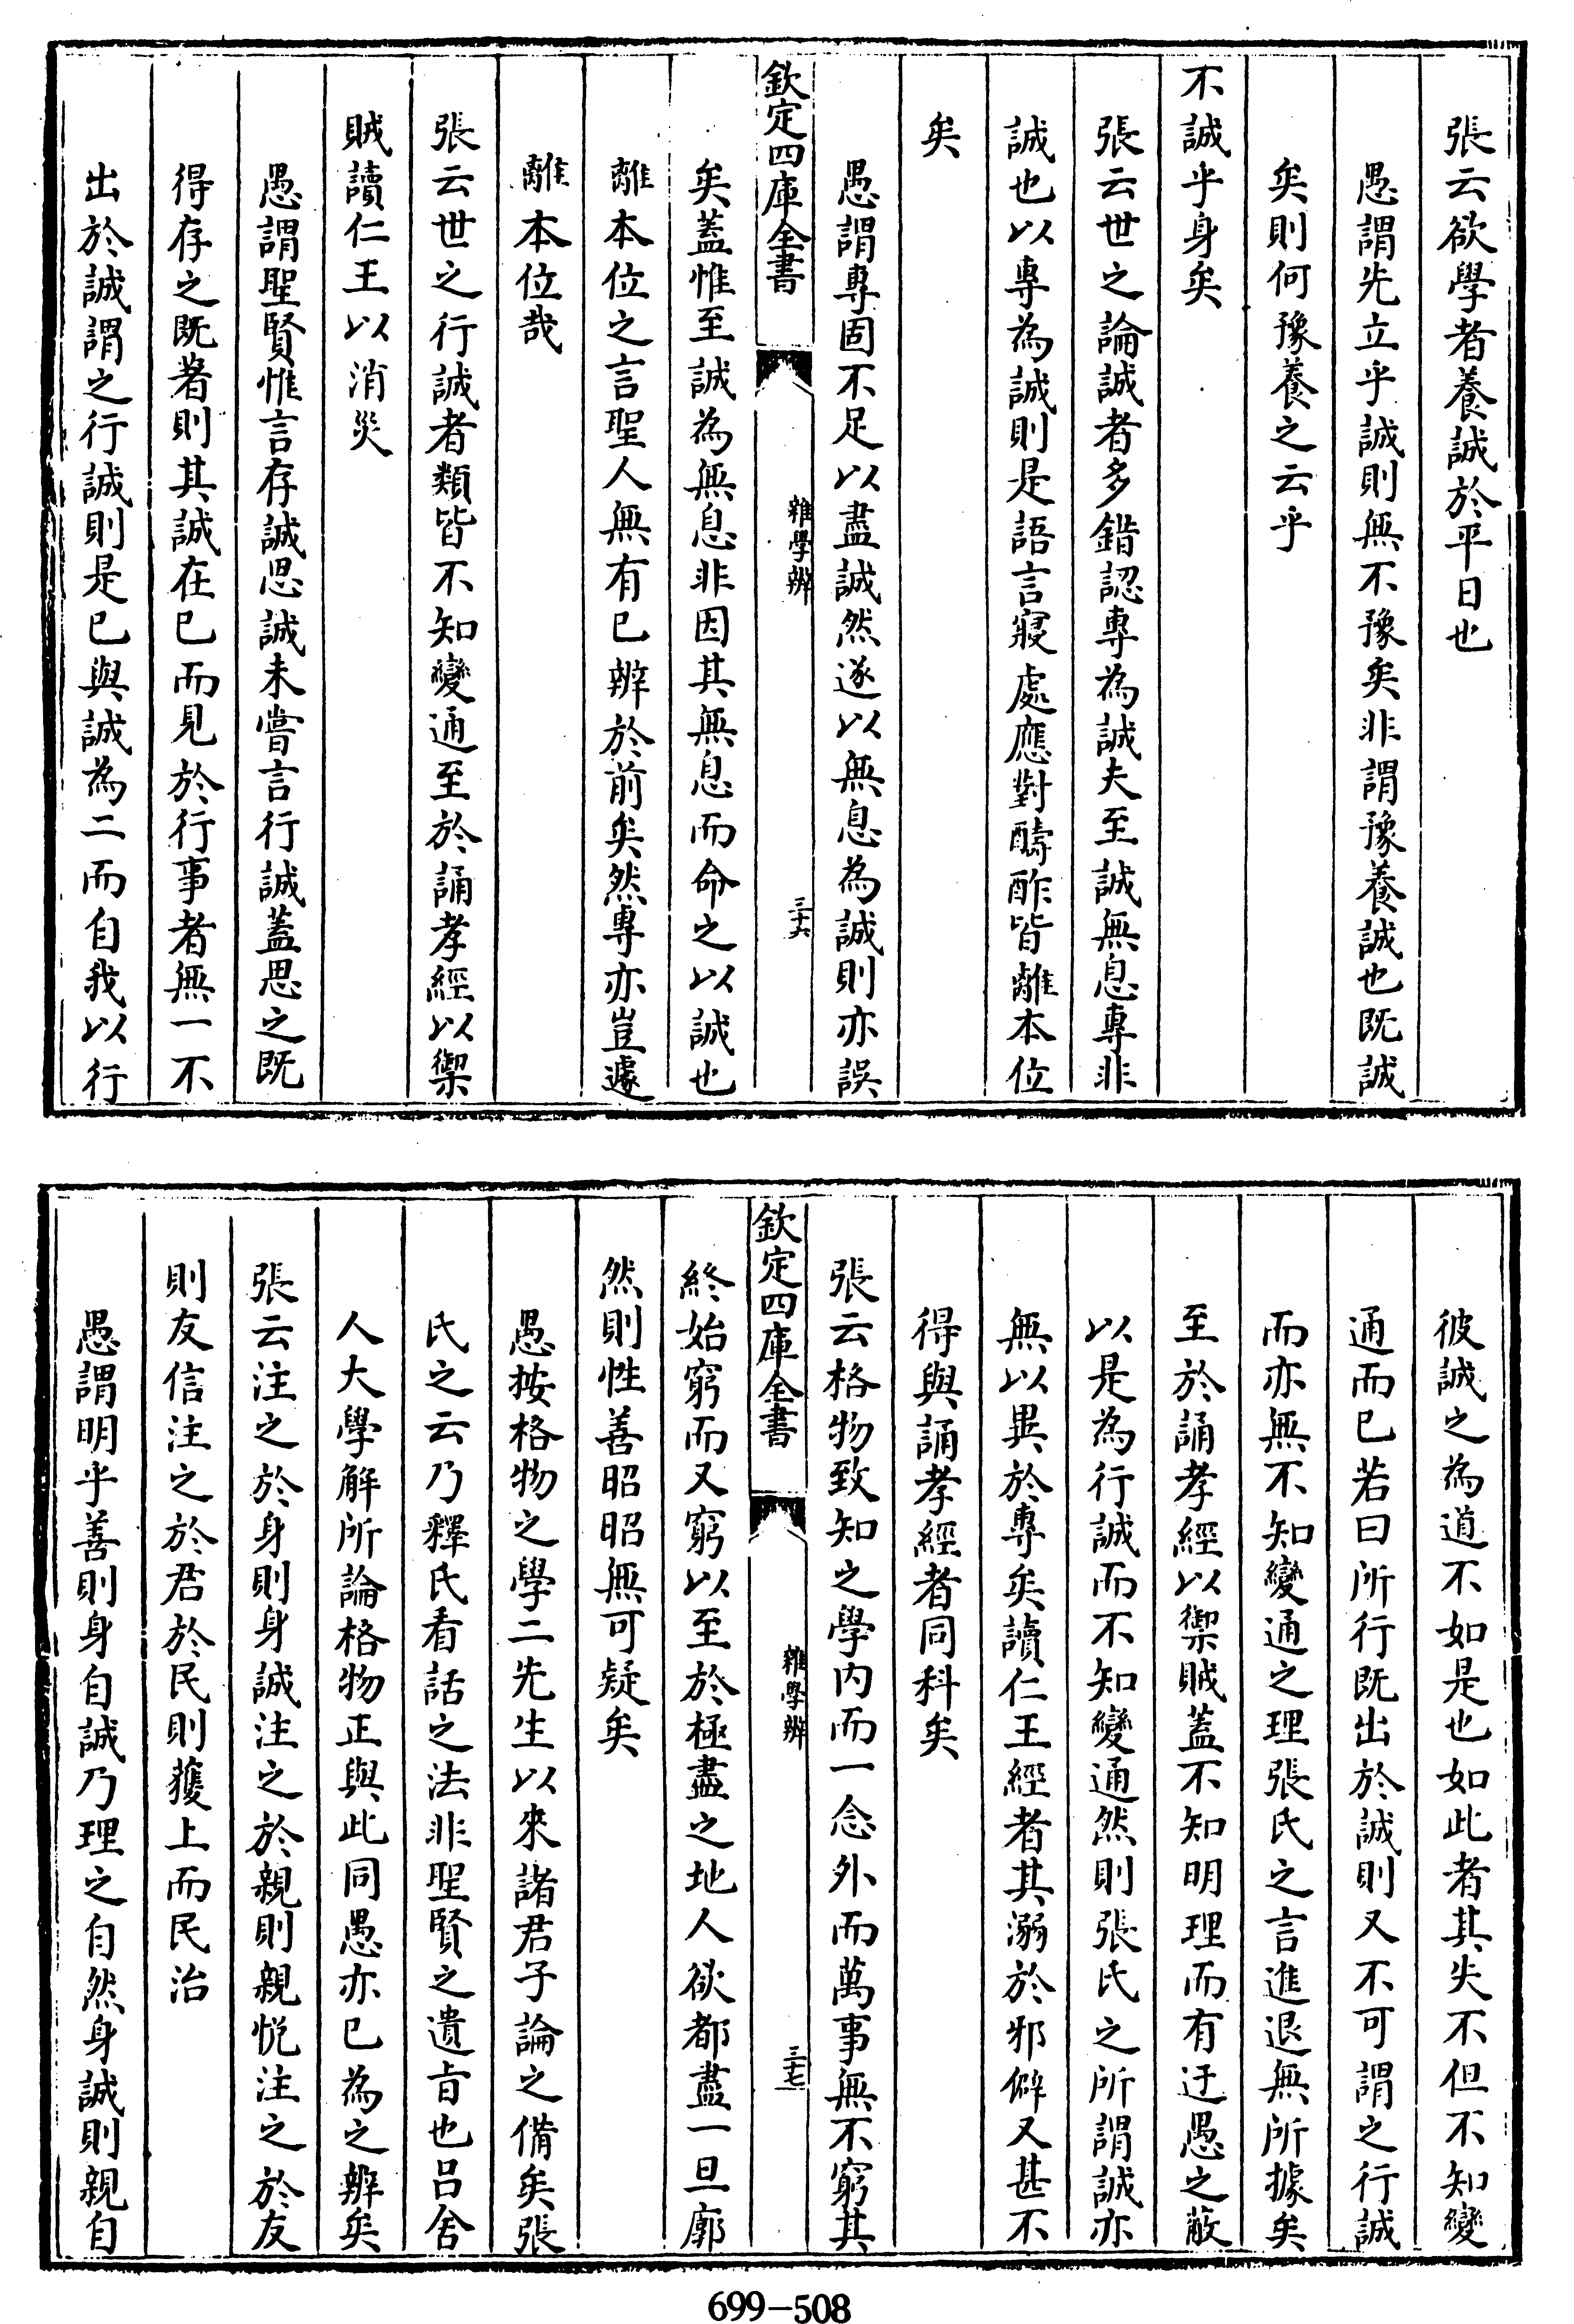 張云欲學者養誠於平日也
愚謂先立乎誠則無不豫矣非謂豫養誠也既誠
矣則何豫養之云乎
不誠乎身矣
張云世之論誠者多錯認專為誠夫至誠無息專非
誠也以專為誠則是語言寢處應對酬酢皆離本位
矣
愚謂專固不足以盡誠然遂以無息為誠則亦誤
欽定四庫全書
雜學辨
三十六
矣蓋惟至誠為無息非因其無息而命之以誠也
離本位之言聖人無有已辨於前矣然專亦豈遽
離本位哉
張云世之行誠者類皆不知變通至於誦孝經以禦
賊讀仁王以消災
愚謂聖賢惟言存誠思誠未嘗言行誠蓋思之既
得存之既著則其誠在已而見於行事者無一不
出於誠謂之行誠則是已與誠為二而自我以行
彼誠之為道不如是也如此者其失不但不知變
通而已若曰所行既出於誠則又不可謂之行誠
而亦無不知變通之理張氏之言進退無所據矣
至於誦孝經以禦賊蓋不知明理而有迂愚之蔽
以是為行誠而不知變通然則張氏之所謂誠亦
無以異於專矣讀仁王經者其溺於邪僻又甚不
得與誦孝經者同科矣
張云格物致知之學内而一念外而萬事無不窮其
欽定四庫全書
雜學辨
三十七
終始窮而又窮以至於極盡之地人欲都盡一旦廓
然則性善昭昭無可疑矣
愚按格物之學二先生以來諸君子論之備矣張
氏之云乃釋氏看話之法非聖賢之遺旨也呂舍
人大學解所論格物正與此同愚亦已為之辨矣
張云注之於身則身誠注之於親則親悅注之於友
則友信注之於君於民則獲上而民治
愚謂明乎善則身自誠乃理之自然身誠則親自
699-508